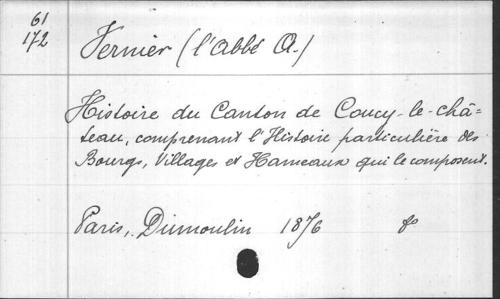 61
172
Vernier (l'Abbé A.)
Histoire du Canton de Coucy-le-châ=
teau, comprenant l'Histoire particulière des
Bourgs, Villages et Hameaux qui le composent.
Paris, Dumoulin 1876 8°